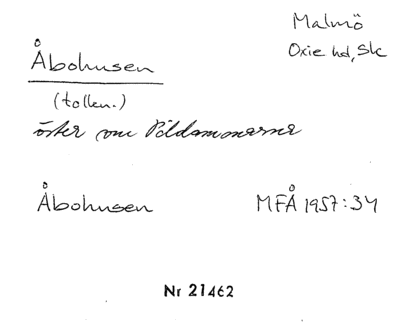 Malmö
Oxie hd, Sk
Åbohusen
(tollen.)
öster om Pildammarna
Åbohusen MFÅ 1957:34
Nr 21462